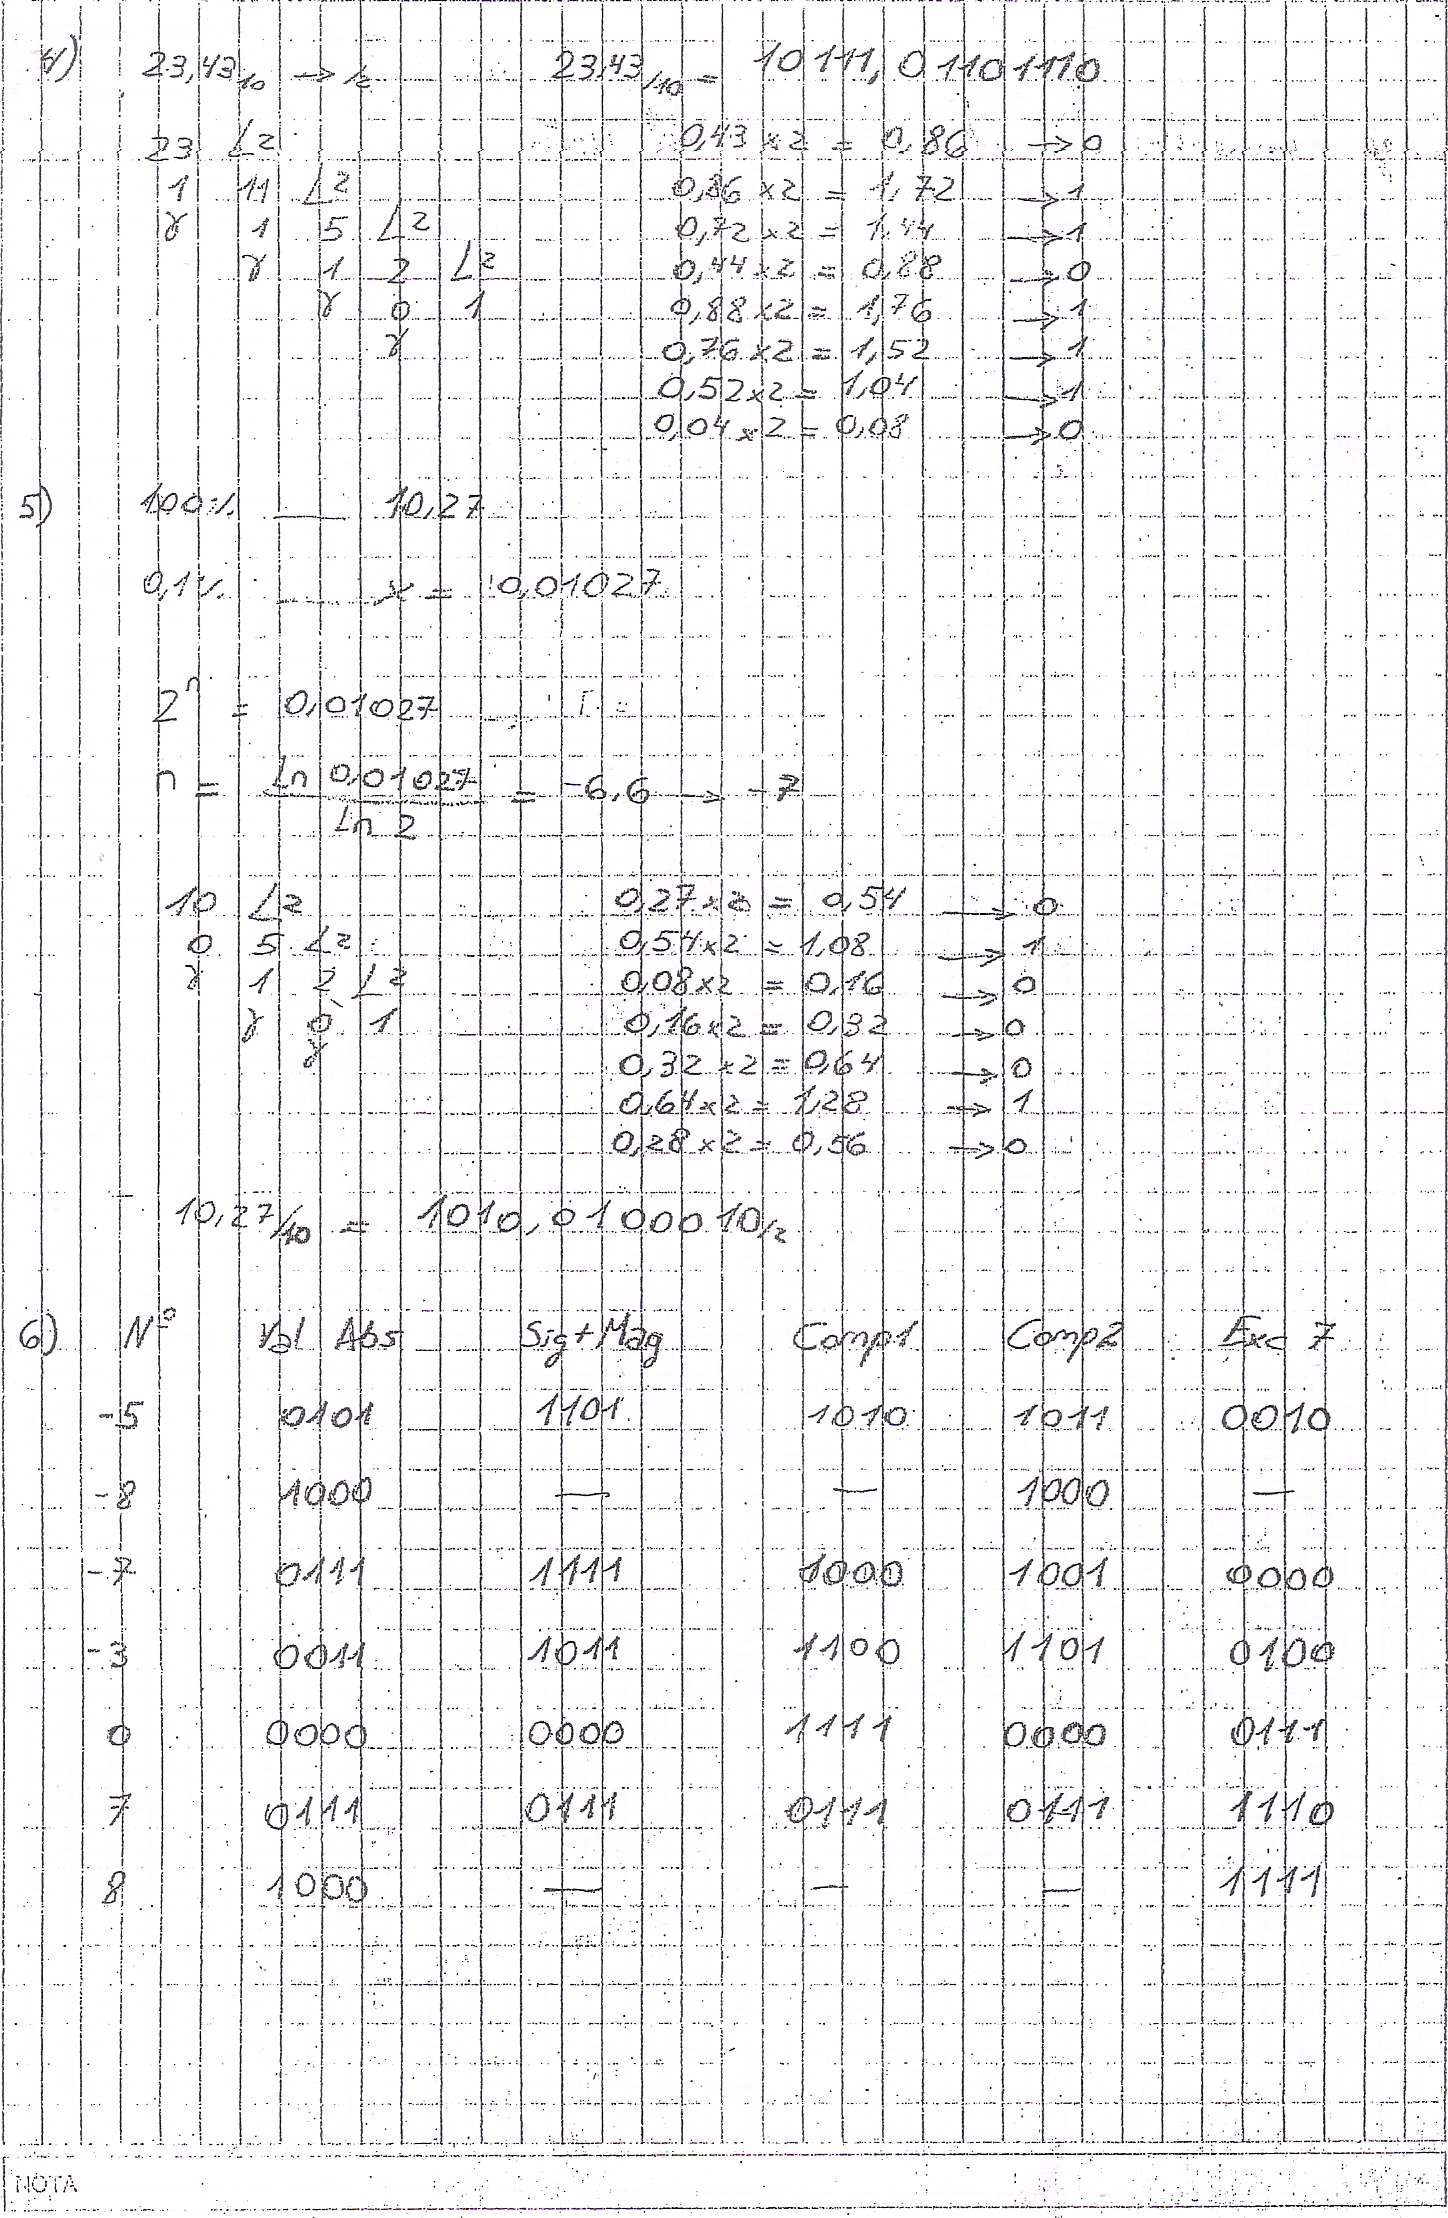 4) 23,43/10 → /2 23,43/10 = 10111,01101110
23 ∠2 0,43 x 2 = 0,86 → 0
1 11 ∠2 0,86 x 2 = 1,72 → 1
γ 1 5 ∠2 0,72 x 2 = 1,44 → 1
γ 1 2 ∠2 0,44 x 2 = 0,88 → 0
γ 0 1 0,88 x 2 = 1,76 → 1
γ 0,76 x 2 = 1,52 → 1
0,52 x 2 = 1,04 → 1
0,04 x 2 = 0,08 → 0
5) 100% __ 10,27
0,1% __ x = 0,01027
2^n = 0,01027
n = Ln 0,01027 / Ln 2 = -6,6 → -7
10 ∠2 0,27 x 2 = 0,54 → 0
0 5 ∠2 0,54 x 2 = 1,08 → 1
γ 1 2 ∠2 0,08 x 2 = 0,16 → 0
γ 0 1 0,16 x 2 = 0,32 → 0
γ 0,32 x 2 = 0,64 → 0
0,64 x 2 = 1,28 → 1
0,28 x 2 = 0,56 → 0
10,27/10 = 1010,0100010/2
6) Nº Val Abs Sig+Mag Comp1 Comp2 Exc 7
-5 0101 1101 1010 1011 0010
-8 1000 — — 1000 —
-7 0111 1111 1000 1001 0000
-3 0011 1011 1100 1101 0100
0 0000 0000 1111 0000 0111
7 0111 0111 0111 0111 1110
8 1000 — — — 1111
NOTA